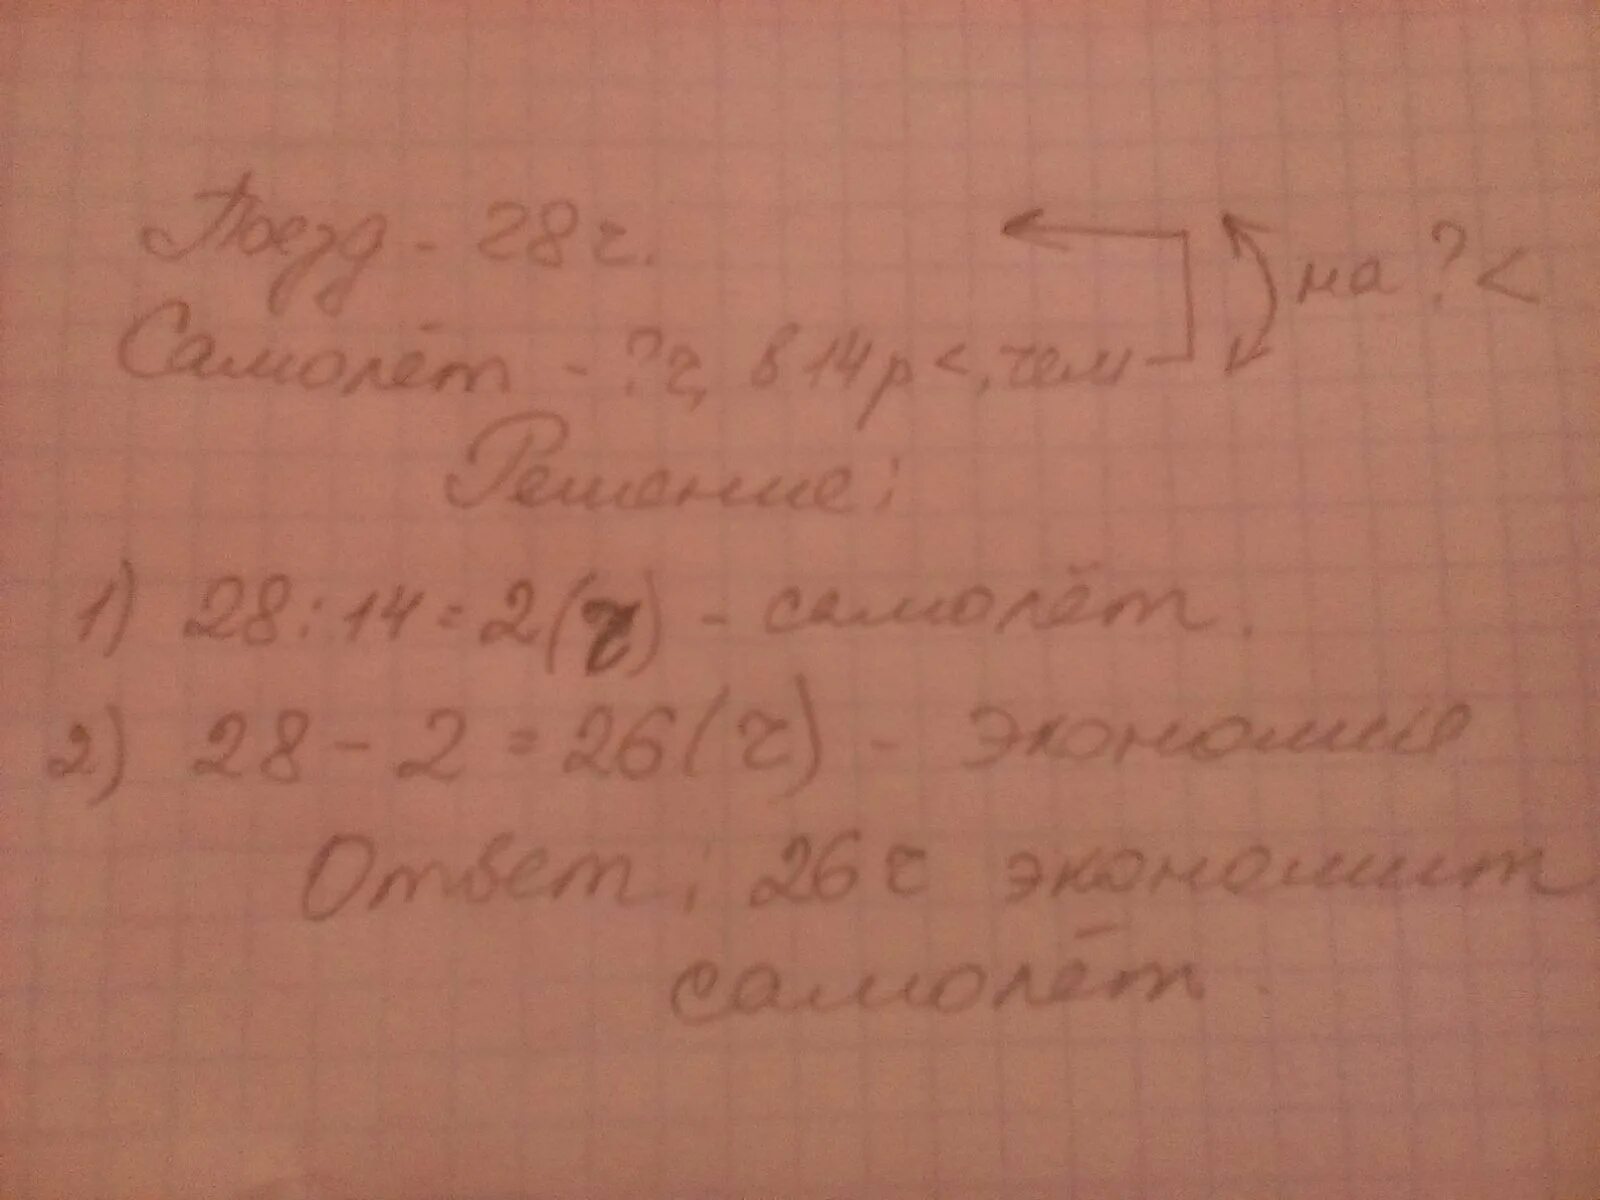 Поезд - 28 ч.
на ? <
Самолёт - ? ч, в 14 р <, чем
Решение:
1) 28 : 14 = 2 (ч) - самолёт.
2) 28 - 2 = 26 (ч) - экономия
Ответ: 26 ч экономит
самолёт.